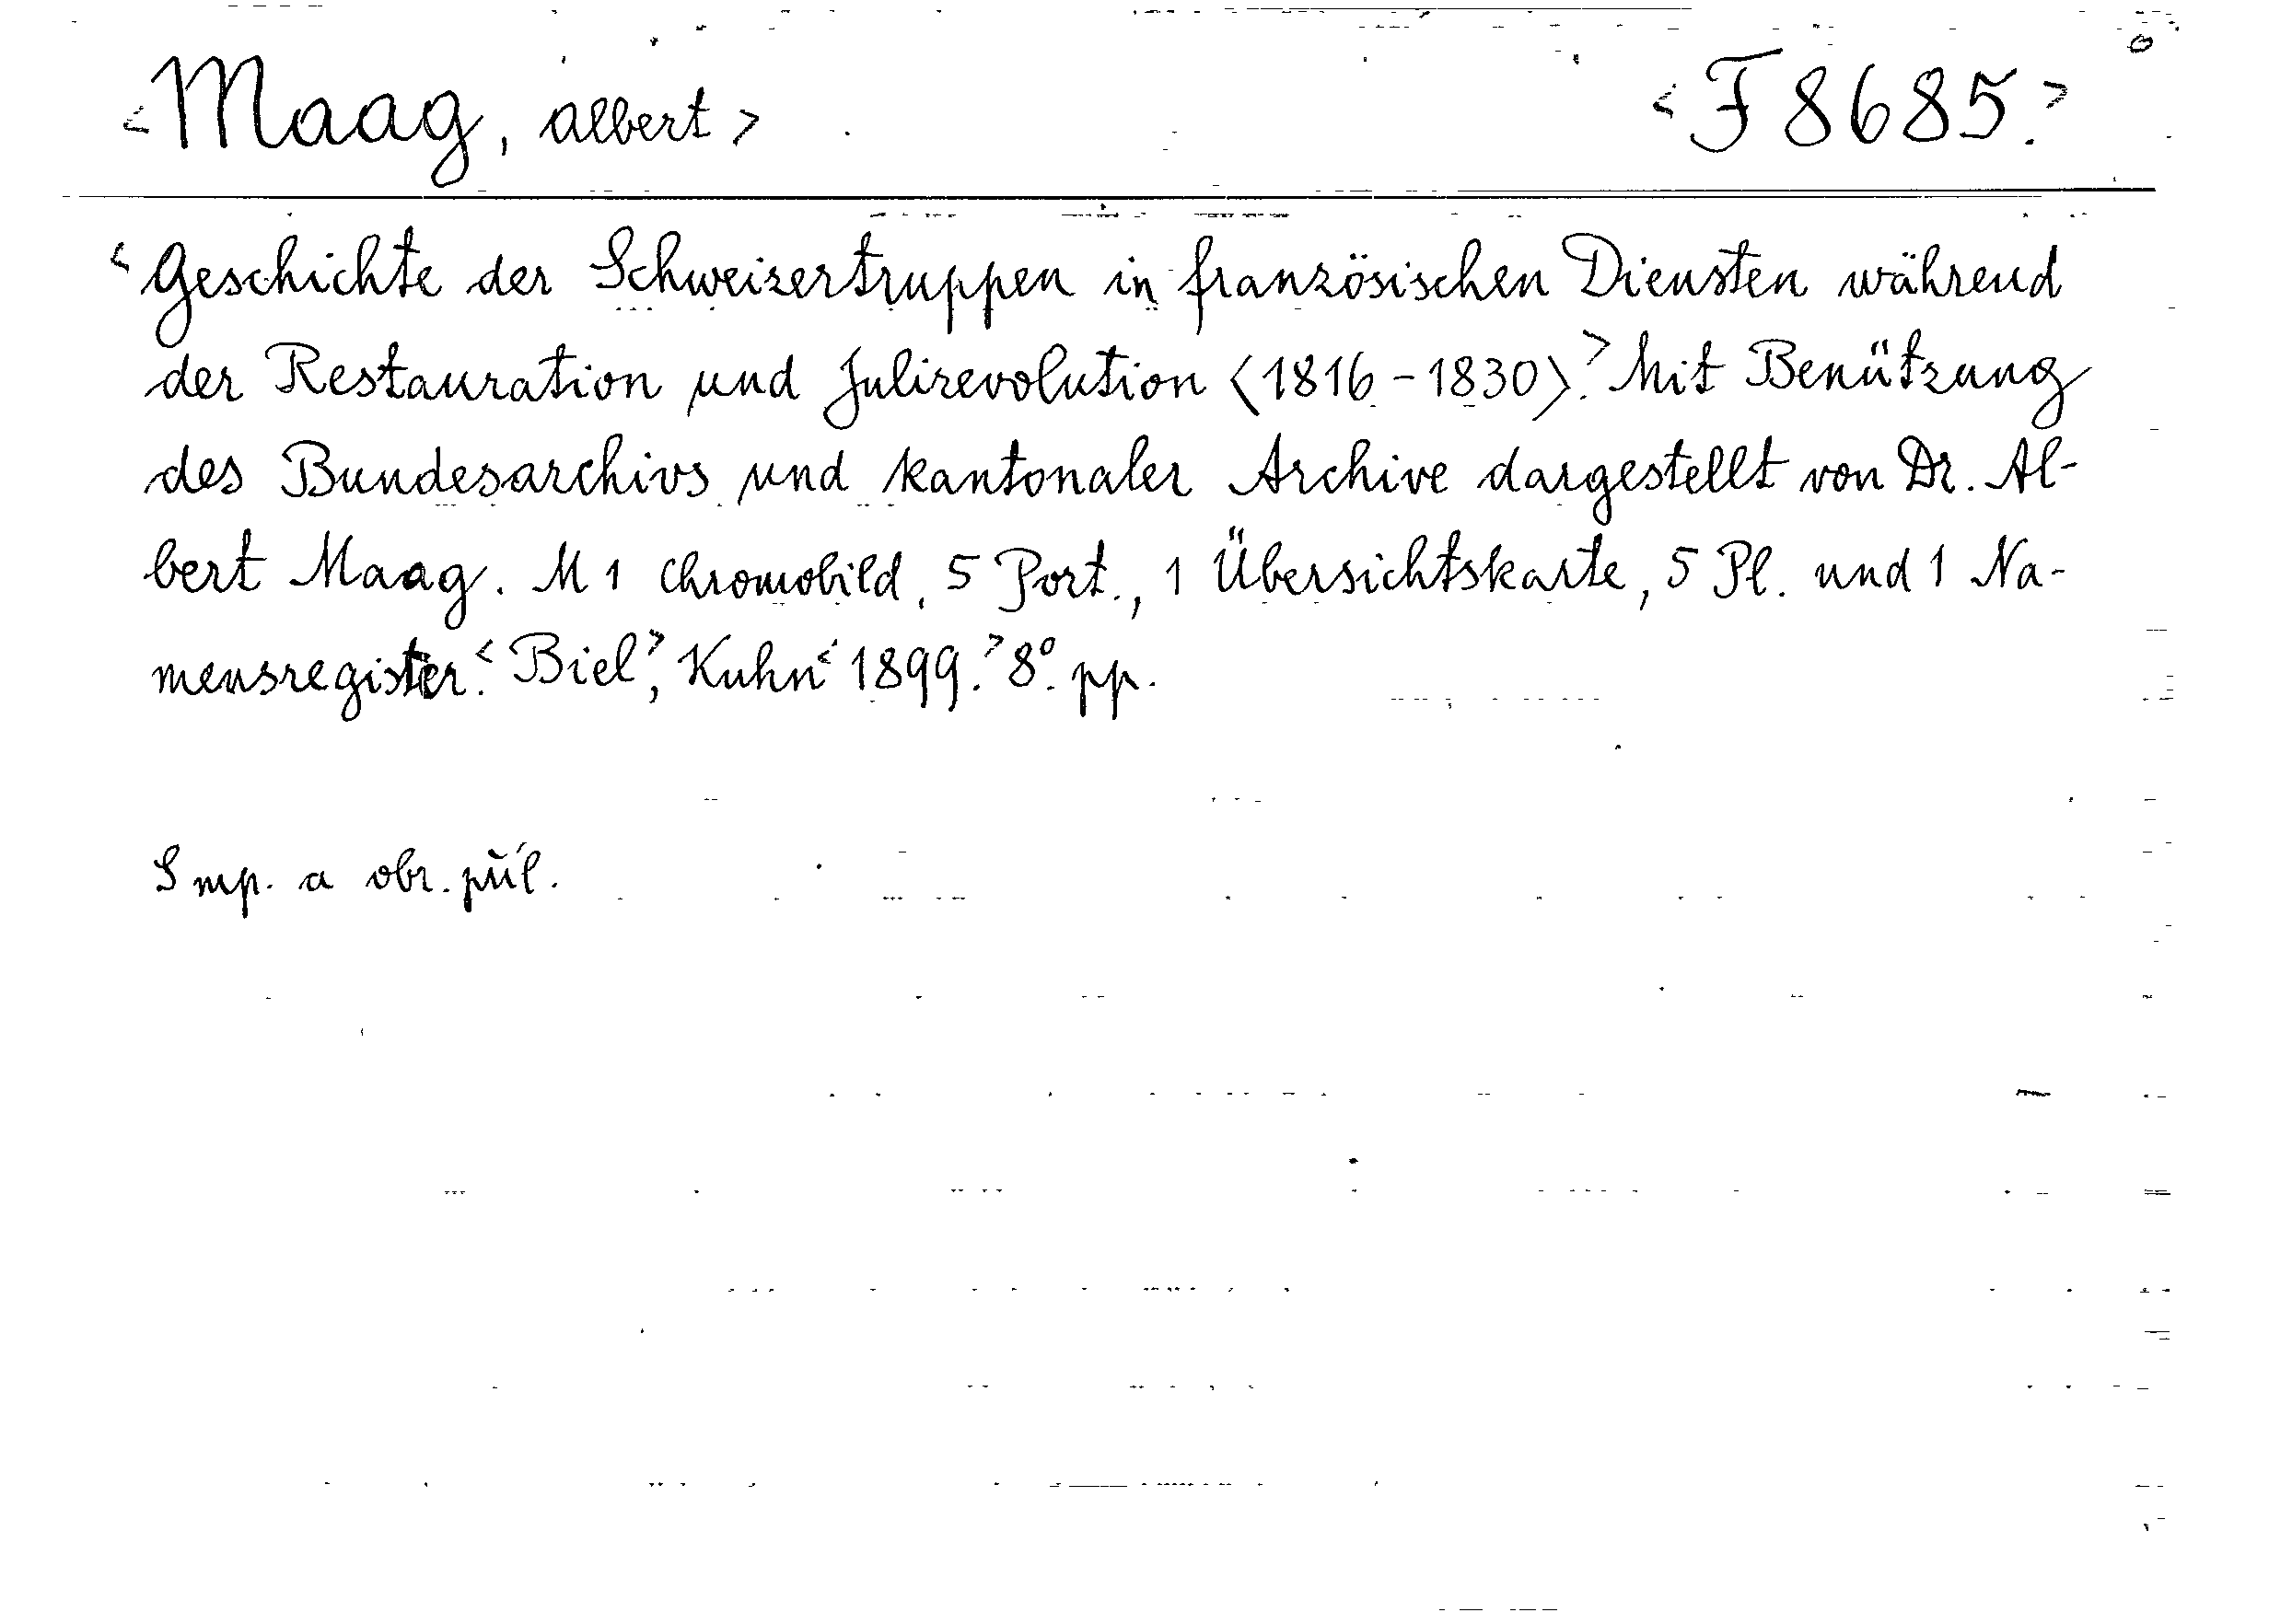 <Maag, Albert> <F 8685.>
<Geschichte der Schweizertruppen in französischen Diensten während
der Restauration und Julirevolution (1816-1830).> Mit Benützung
des Bundesarchivs und kantonaler Archive dargestellt von Dr. Al-
bert Maag. M 1 Chromobild, 5 Port., 1 Übersichtskarte, 5 Pl. und 1 Na-
mensregister. <Biel>, Kuhn <1899.> 8°. pp.
S mp. a obr. příl.